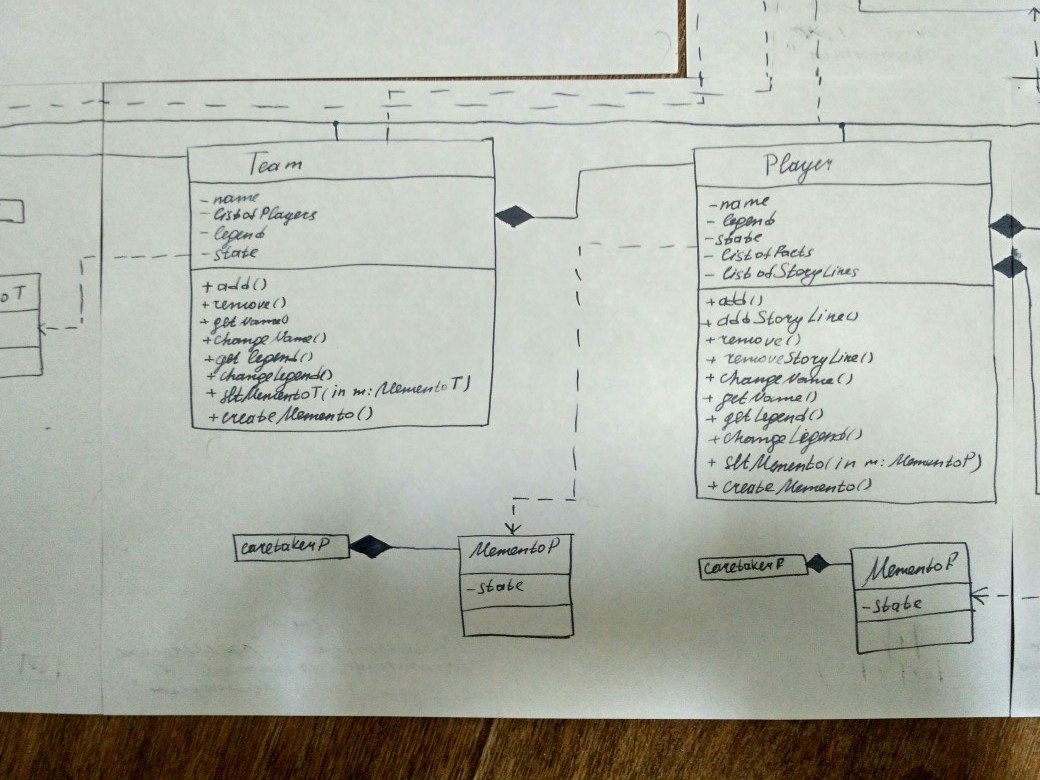 Team
- name
- List of Players
- legend
- state
+ add()
+ remove()
+ get Name()
+ change Name()
+ get Legend()
+ change Legend()
+ set Memento T(in m: Memento T)
+ create Memento()
Player
- name
- legend
- state
- List of Facts
- List of Story Lines
+ add()
+ add Story Line()
+ remove()
+ remove Story Line()
+ change Name()
+ get Name()
+ get Legend()
+ change Legend()
+ set Memento(in m: Memento P)
+ create Memento()
o T
caretaker P
Memento P
- state
caretaker F
Memento F
- state